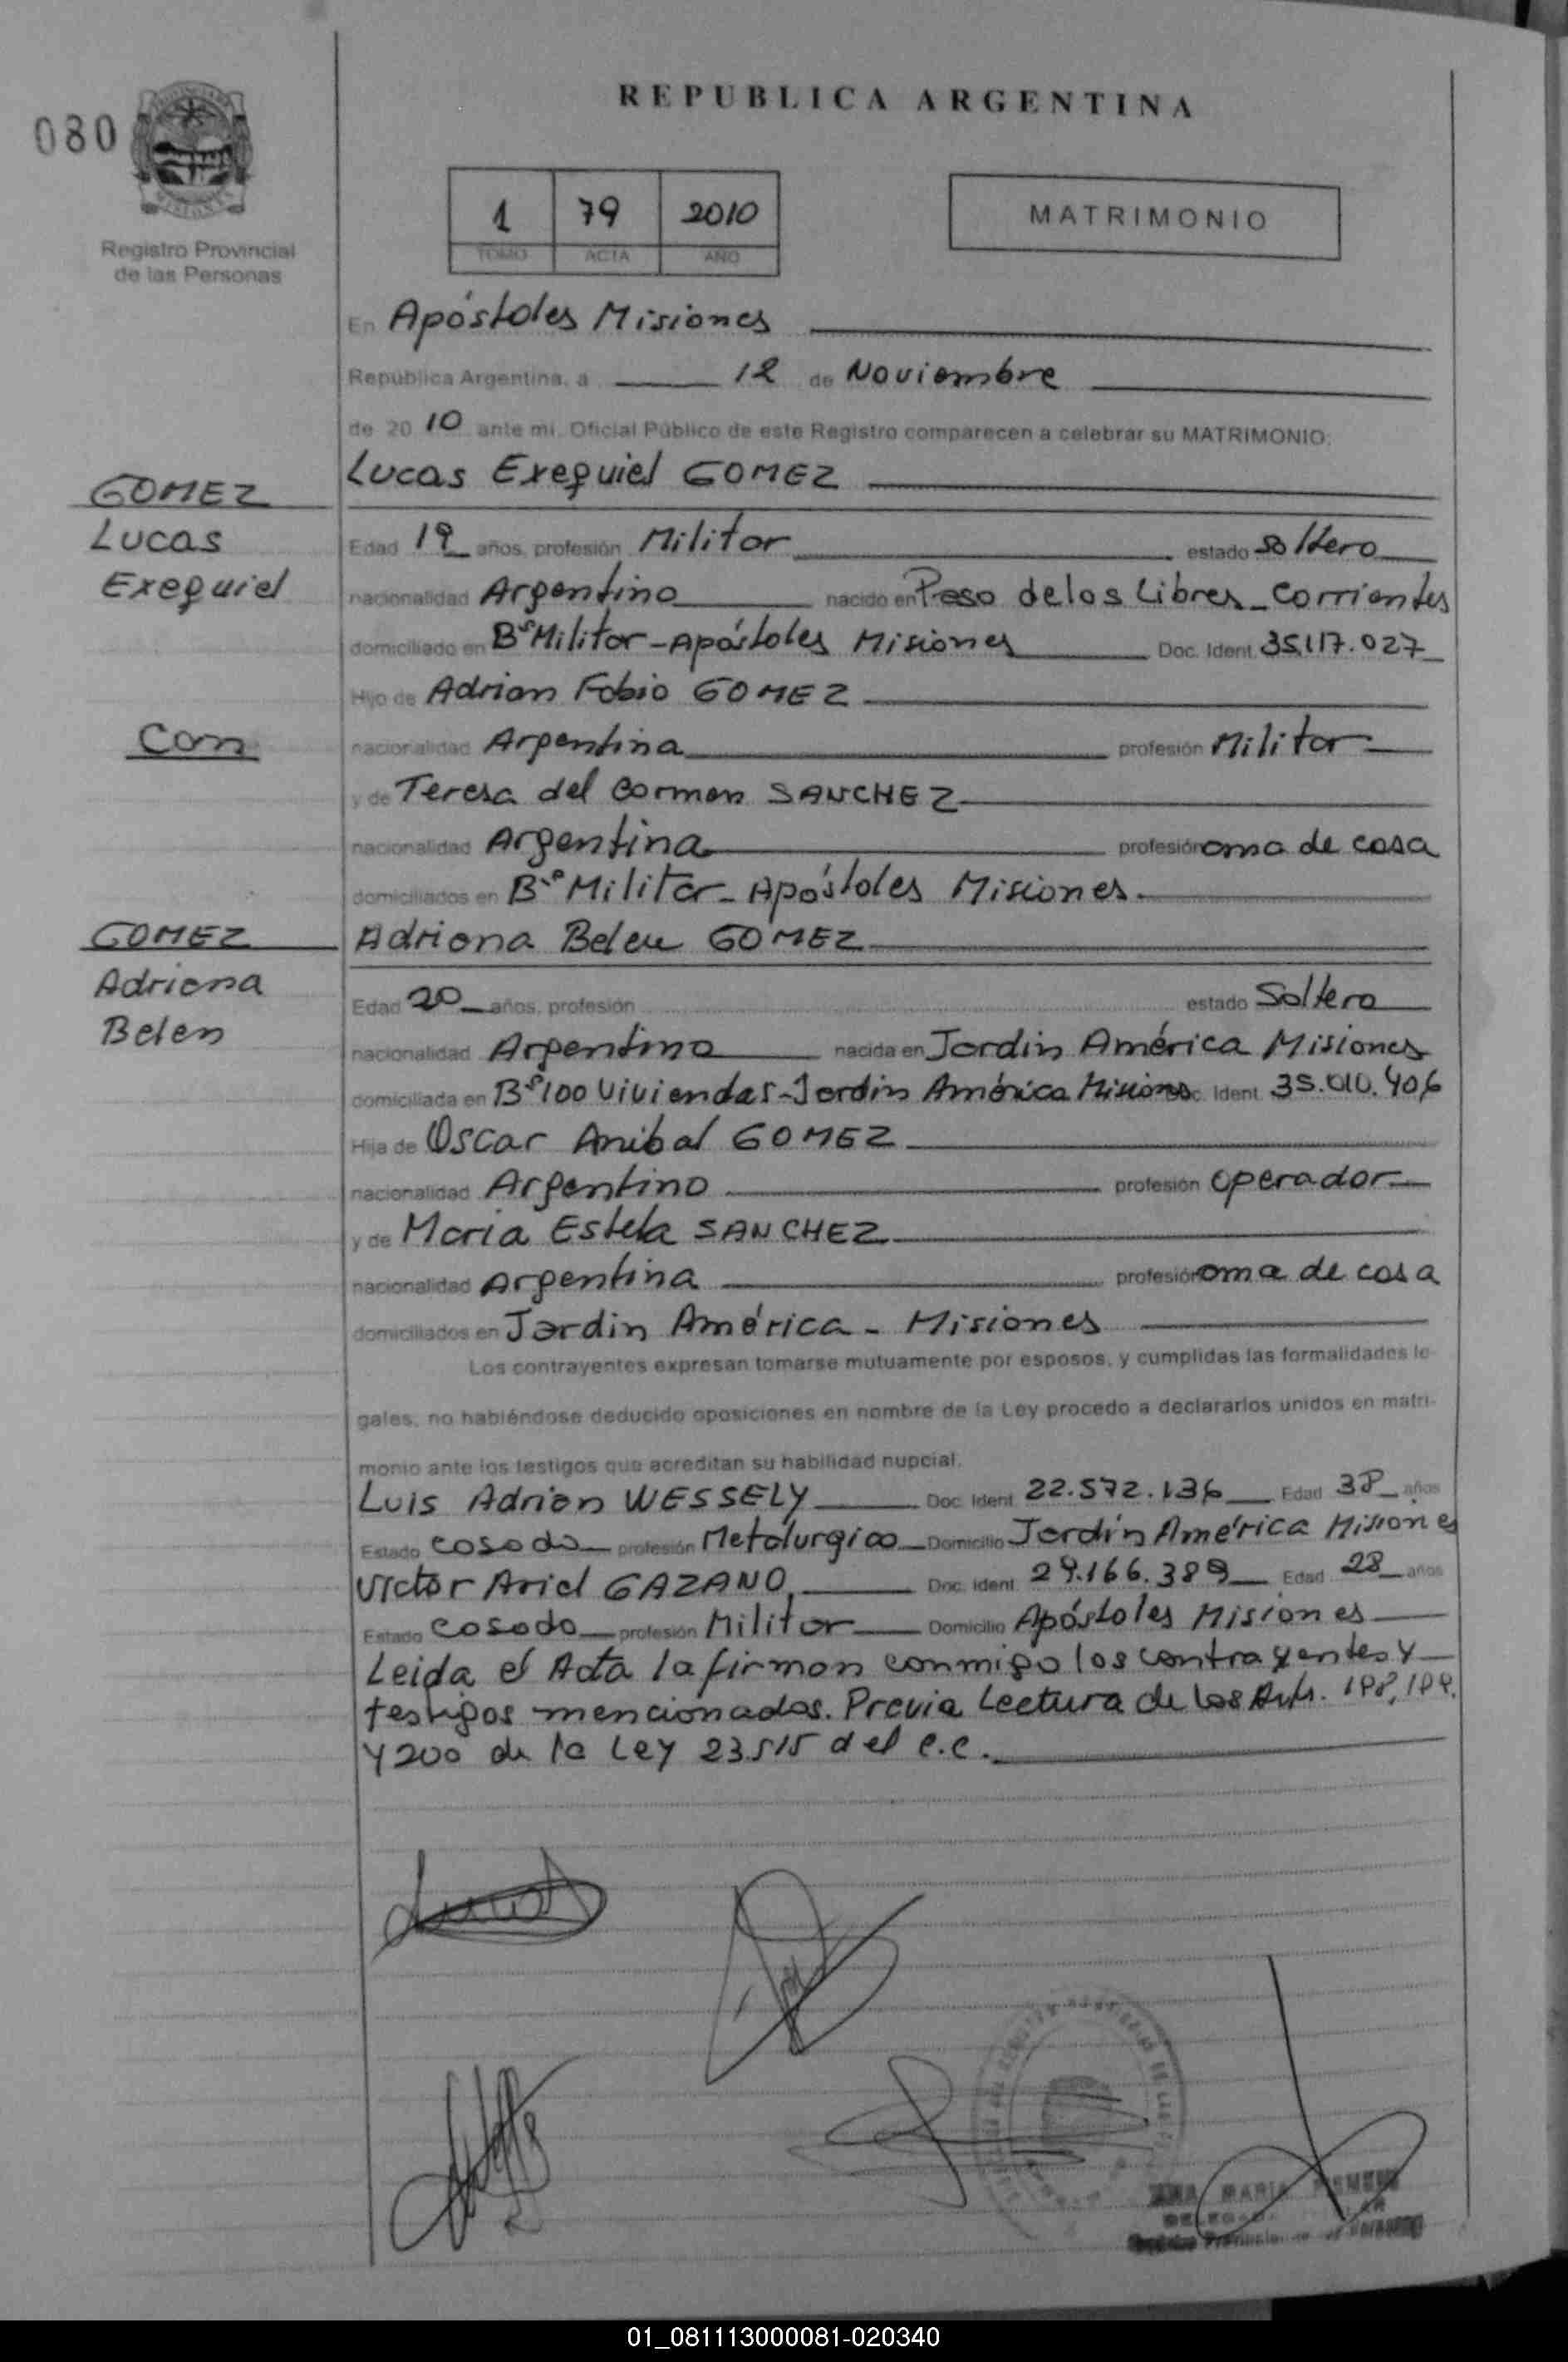 080
REPUBLICA ARGENTINA
MISIONES
Registro Provincial
de las Personas
1 79 2010
TOMO ACTA AÑO
MATRIMONIO
En Apóstoles Misiones
República Argentina, a 12 de Noviembre
de 2010 ante mi, Oficial Público de este Registro comparecen a celebrar su MATRIMONIO:
Lucas Exequiel GOMEZ
GOMEZ
Lucas
Exequiel
Edad 19 años, profesión Militar estado soltero
nacionalidad Argentino nacido en Paso de los Libres - Corrientes
domiciliado en Bº Militar - Apóstoles Misiones Doc. Ident. 35.117.027
Hijo de Adrian Fabio GOMEZ
Con
nacionalidad Argentina profesión Militar
y de Teresa del Carmen SANCHEZ
nacionalidad Argentina profesión ama de casa
domiciliados en Bº Militar - Apóstoles Misiones
GOMEZ
Adriana
Belen
Adriana Belen GOMEZ
Edad 20 años, profesión estado Soltera
nacionalidad Argentina nacida en Jardin América Misiones
domiciliada en Bº 100 Viviendas - Jardin América Misiones Doc. Ident. 35.010.406
Hija de Oscar Anibal GOMEZ
nacionalidad Argentino profesión Operador
y de Maria Estela SANCHEZ
nacionalidad Argentina profesión ama de casa
domiciliados en Jardin América - Misiones
Los contrayentes expresan tomarse mutuamente por esposos, y cumplidas las formalidades le-
gales, no habiéndose deducido oposiciones en nombre de la Ley procedo a declararlos unidos en matri-
monio ante los testigos que acreditan su habilidad nupcial.
Luis Adrian WESSELY Doc. Ident. 22.572.136 Edad 38 años
Estado casado profesión Metalurgico Domicilio Jardín América Misiones
Victor Ariel GAZANO Doc. Ident. 29.166.389 Edad 28 años
Estado casado profesión Militar Domicilio Apóstoles Misiones
Leida el Acta la firman conmigo los contrayentes y
testigos mencionados. Previa Lectura de los Arts. 198, 199.
y 200 de la Ley 23.515 del C.C.
MARIA
01_081113000081-020340